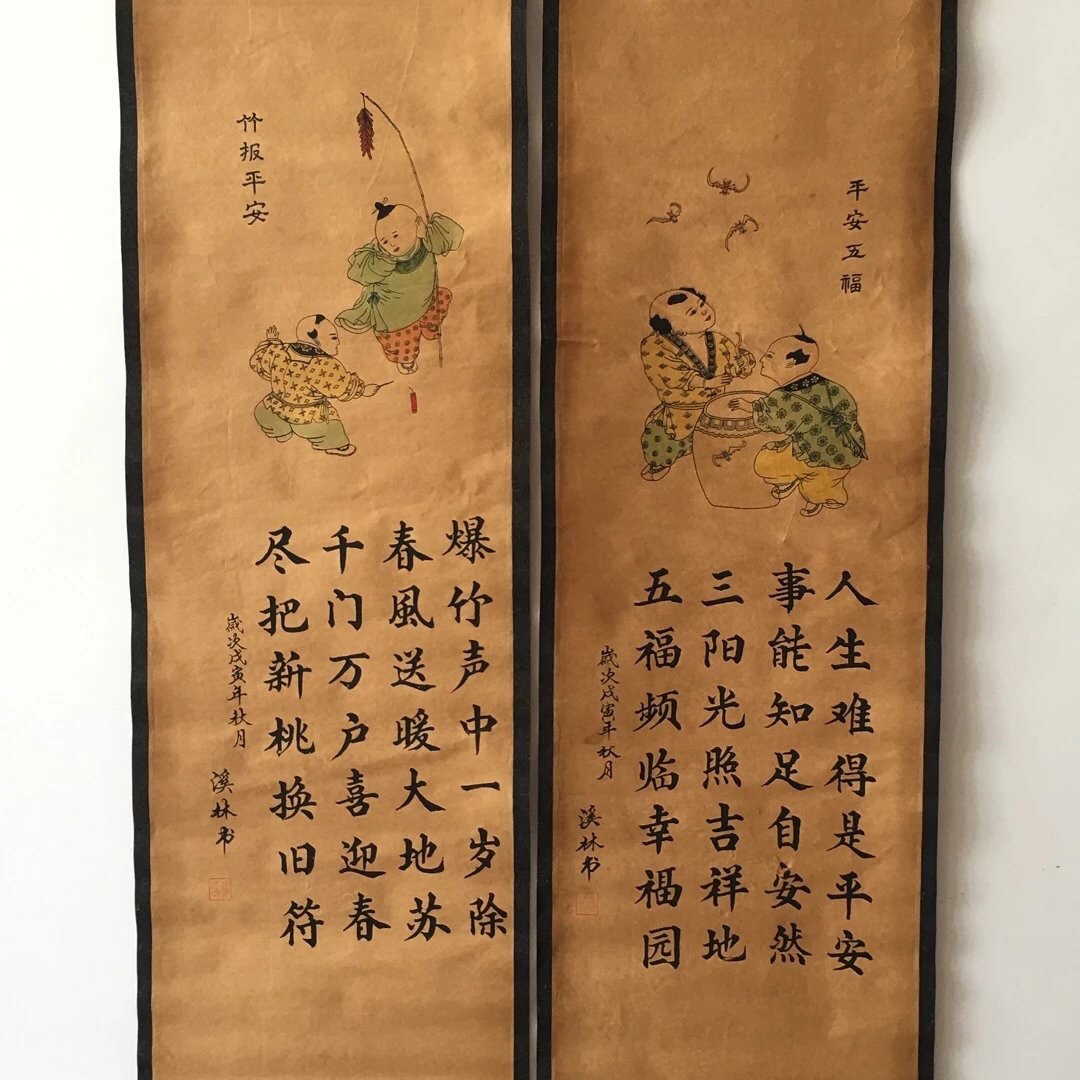 平安五福
人生难得是平安
事能知足自安然
三阳光照吉祥地
五福频临幸福园
歲次戊寅年秋月
溪林书
竹报平安
爆竹声中一岁除
春風送暖大地苏
千门万户喜迎春
尽把新桃换旧符
歲次戊寅年秋月
溪林书